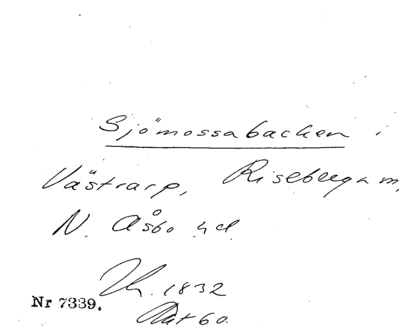 Sjömossabacken
Västrarp, Riseberga m,
N. Åsbo hd
1832
Nr 7339.
60.